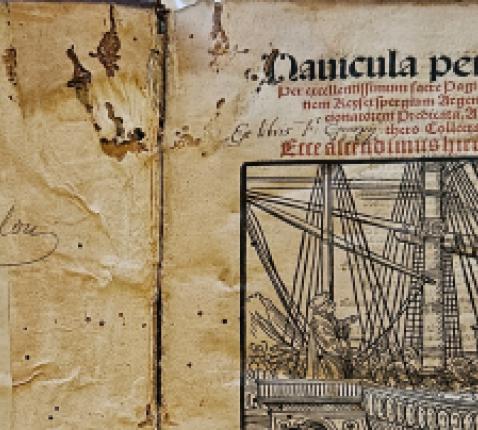 Nauicula pe
Per excellentissimum sacre Pagi
nem Keyserspergium Argen
cionatorem Predicata. A
Ex libris
thero Collecta
Ecce ascendimus hie